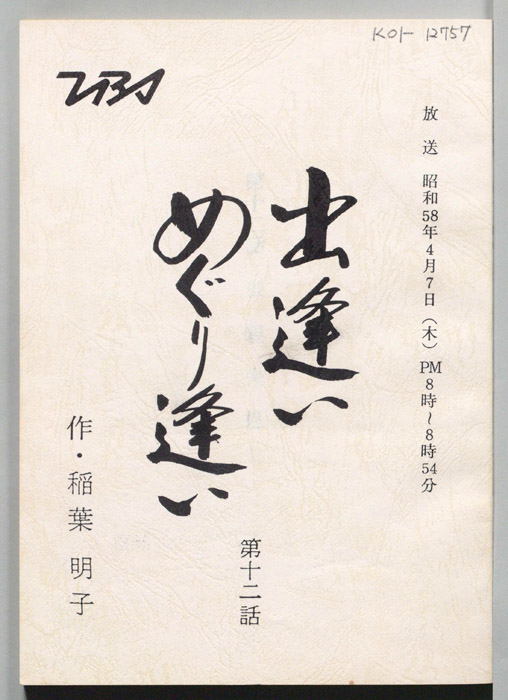 K01- 12757
TBS
放送 昭和58年4月7日(木)PM8時~8時54分
出逢い
めぐり逢い
第十二話
作・稲葉 明子